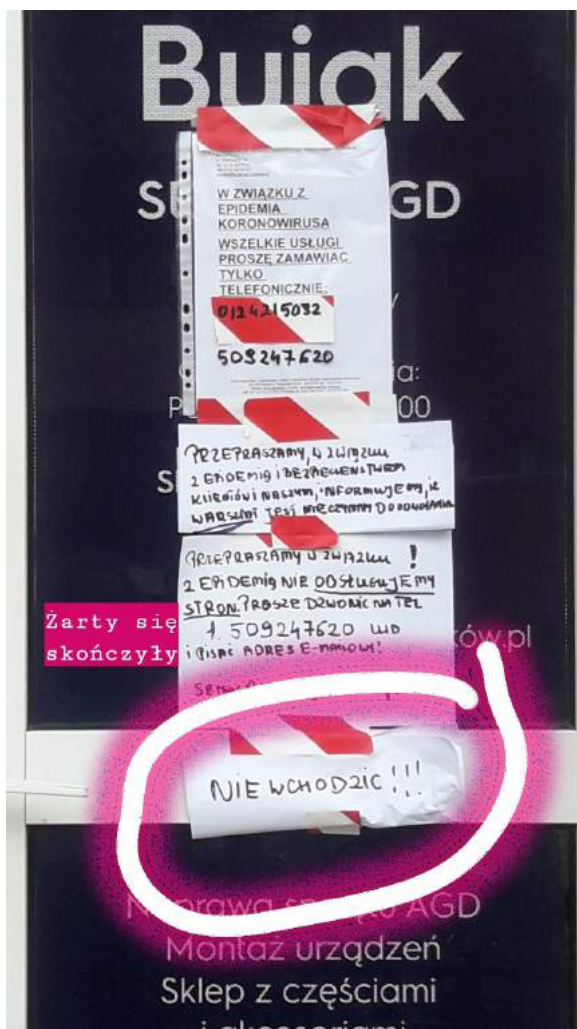 Bujak
GD
W ZWIĄZKU Z
EPIDEMIA
KORONOWIRUSA
WSZELKIE USŁUGI
PROSZĘ ZAMAWIAC
TYLKO
TELEFONICZNIE:
0124215032
509247620
00
PRZEPRASZAMY, W ZWIĄZKU
Z EPIDEMIĄ I BEZPIECZEŃSTWEM
KLIENTÓW I NASZYM, INFORMUJEMY, IŻ
WARSZTAT JEST NIECZYNNY DO ODWOŁANIA
PRZEPRASZAMY W ZWIĄZKU !
Z EPIDEMIĄ NIE OBSŁUGUJEMY
STRON. PROSZE DZWONIC NA TEL
1. 509247620 LUB
PISAĆ ADRES E-MAILOWY!
Żarty się
skończyły
ków.pl
NIE WCHODZIC!!!
Naprawa sprzętu AGD
Montaż urządzeń
Sklep z częściami
i akcesoriami